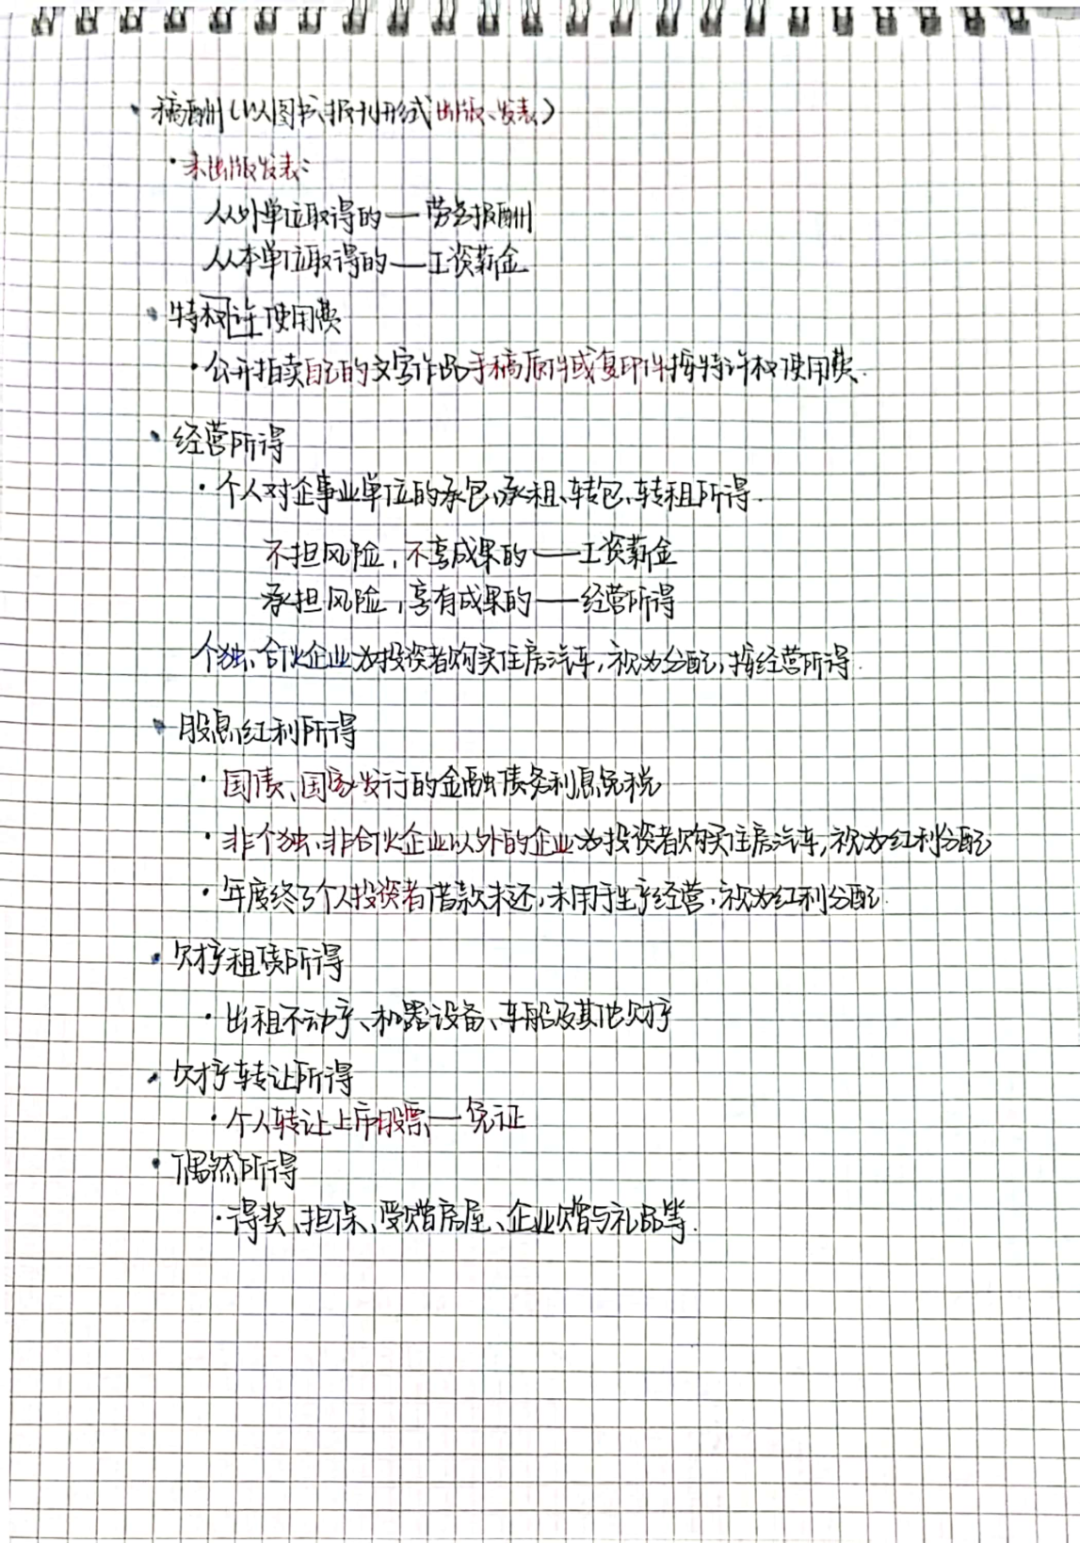 · 稿酬(以图书、报刊形式出版、发表)
· 未出版发表:
从外单位取得的——劳务报酬
从本单位取得的——工资薪金
· 特权许使用费
· 公开拍卖自己的文字作品手稿原件或复印件按特许权使用费.
· 经营所得
· 个人对企事业单位的承包、承租、转包、转租所得.
不担风险,不享成果的——工资薪金
承担风险,享有成果的——经营所得
个独、合伙企业为投资者购买住房汽车,视为分配,按经营所得.
· 股息红利所得
· 国债、国家发行的金融债务利息免税
· 非个独、非合伙企业以外的企业为投资者购买住房汽车,视为红利分配
· 年度终了个人投资者借款未还,未用于生产经营,视为红利分配.
· 财产租赁所得
· 出租不动产、机器设备、车船及其他财产
· 财产转让所得
· 个人转让上市股票——免证
· 偶然所得
· 得奖、担保、受赠房屋、企业赠与礼品等.